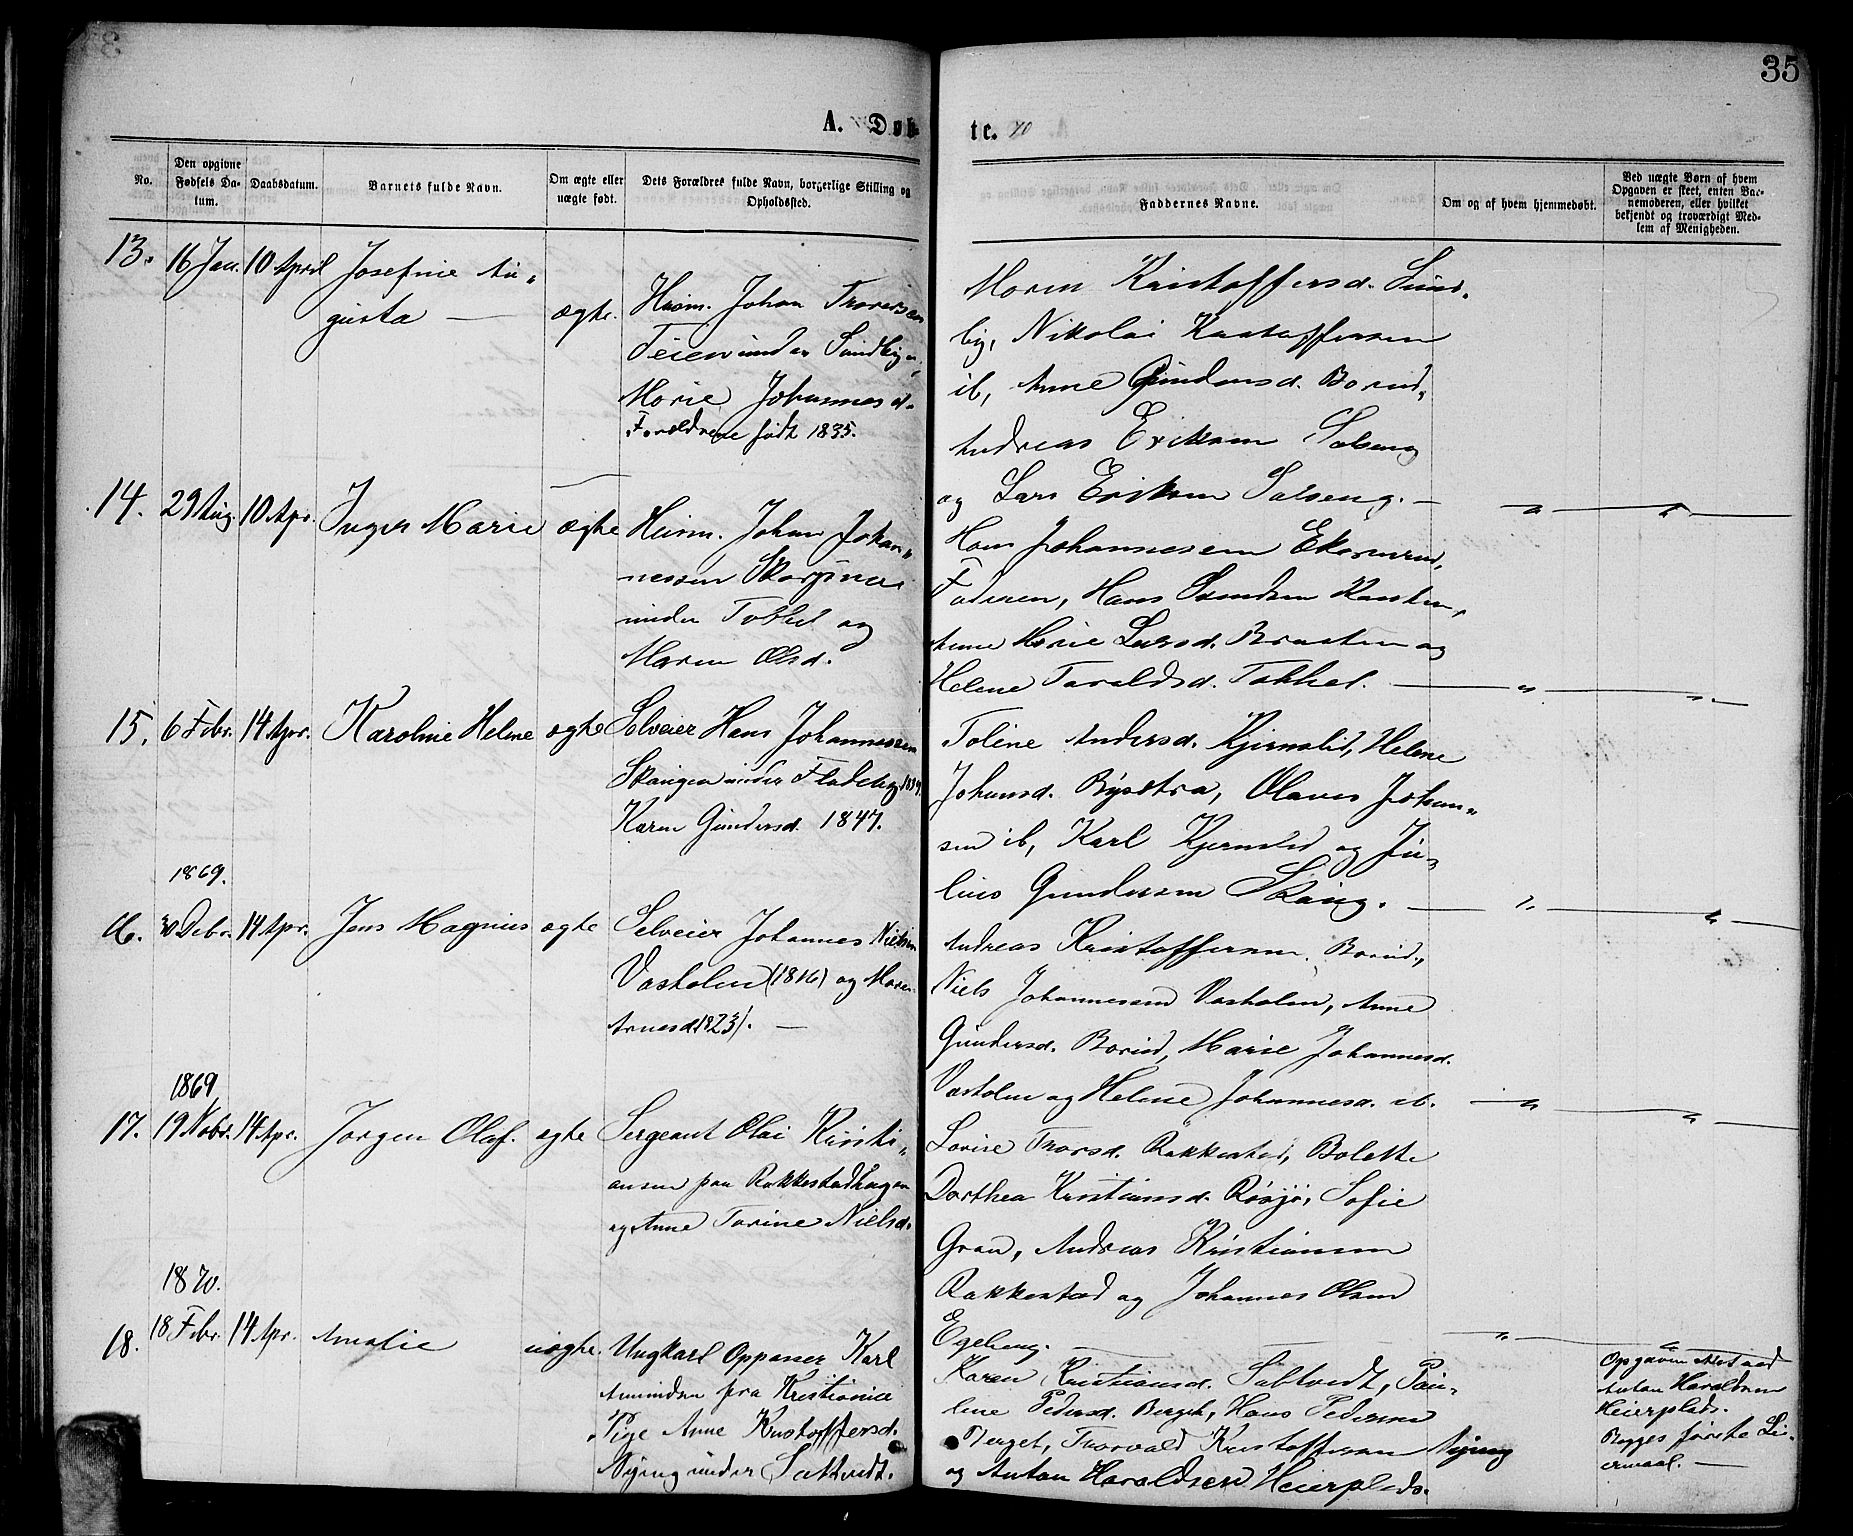 35
A. Døb-
te. 70
No.
Den opgivne Fødsels Da-
tum.
Daabsdatum.
Barnets fulde Navn.
Om ægte eller
uægte født.
Dets Forældres fulde Navn, borgerlige Stilling og
Opholdssted.
Faddernes Navne.
Om og af hvem hjemmedøbt.
Ved uægte Børn af hvem
Opgaven er skeet, enten Bar-
nemoderen, eller hvilket
bekjendt og troværdigt Med-
lem af Menigheden.
13. 16 Jan. 10 April Josefine Au-
gusta — ægte.
Huusm. Johan
under Sundby
Marie Johannesd.
Forældrene født 1835.
Maren Kristoffersd. Sund-
by, Nikolai Kristoffersen
ib, Anne Gundersd. Borud,
Andreas Eriksen Solseng
og Lars Eriksen Solseng. —
14. 29 Aug. 10 Apr. Inger Marie ægte
Huusm. Johan Johan-
nessen
under og
Maren Olsd.
Hans Johannesen
Faderen, Hans
Anne Marie Larsd. Braaten og
Helene Taraldsd.
15. 6 Febr. 14 Apr. Karoline Helene ægte
Selveier Hans Johannessen
Skaugen under
Karen Gundersd. 1847.
Toline Andersd. Kjernslid, Helene
Johansd. Olaves Johan-
sen ib, Karl Kjernslid og Ju-
lius Gundersen Skaug.
1869.
16. 30 Debr. 14 Apr. Jens Magnus ægte
Selveier Johannes Nielsen
Vasholen (1816) og Maren
Arnesd. 1823). —
Andreas Kristoffersen Borud,
Niels Johannesen Vasholen, Anne
Gundersd. Borud, Marie Johannesd.
Vasholen og Helene Johannesd. ib.
1869
17. 19 Nobr. 14 Apr. Jørgen Olaf. ægte
Sergeant Olai Kristi-
ansen paa Rakkestadhagen
og Anne Torine Nielsd.
Lovise Thorsd. Rakkestad, Bolette
Dorthea Kristiansd. Røsjø, Sofie
Gran, Andreas Kristiansen
Rakkestad og Johannes Olsen
Egeberg. —
1870.
18. 18 Febr. 14 Apr. Amalie uægte.
Ungkarl Oppasser Karl
Amundsen fra Kristiania
Pige Anne Kristoffersd.
Nyeng under
Karen Kristiansd. Pau-
line Pedersd. Berget, Hans Pedersen
Berget, Thorvald Kristoffersen Nyeng
og Anton Haraldsen Heierplads.
Opgaven ved
Anton Haraldsen
Heierplads.
Begges første Lei-
ermaal. —